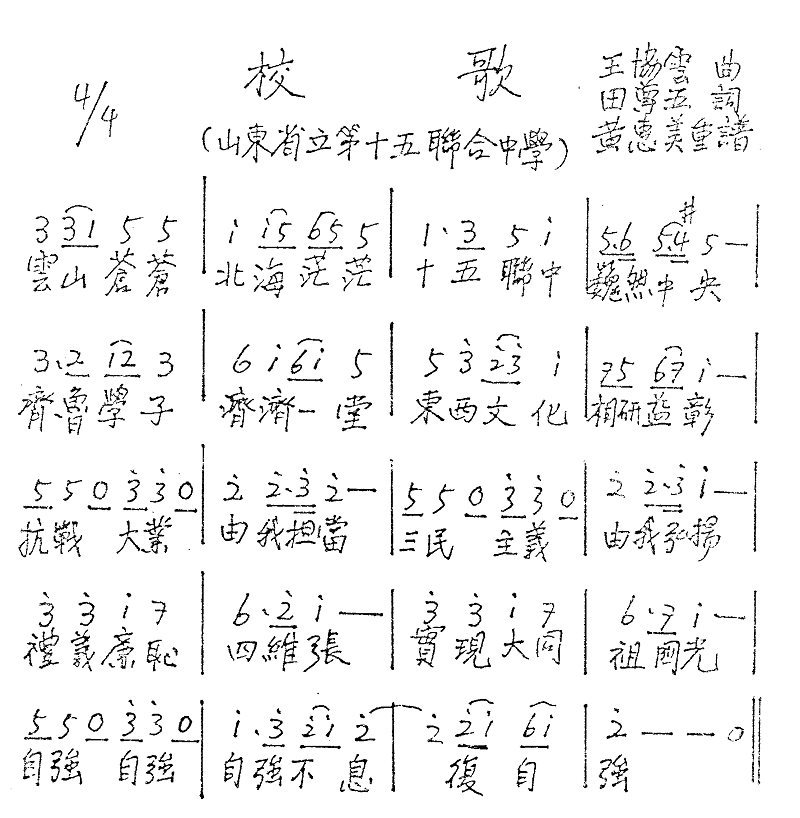 校歌
4/4
王協雲 曲
田尊五 詞
黃惠美重譜
(山東省立第十五聯合中學)
3 31 5 5 | i i5 65 5 | 1. 3 5 i | 5.6 5.#4 5 — |
雲山蒼蒼 北海茫茫 十五聯中 巍然中央
3.2 i2 3 | 6 i 6i 5 | 5 3 23 i | 75 67 i — |
齊魯學子 濟濟一堂 東西文化 相研益彰
5 5 0 3 3 0 | 2 2.3 2 — | 5 5 0 3 3 0 | 2 2.3 i — |
抗戰 大業 由我担當 三民 主義 由我弘揚
3 3 i 7 | 6.2 i — | 3 3 i 7 | 6.7 i — |
禮義廉恥 四維張 實現大同 祖國光
5 5 0 3 3 0 | i.3 2i 2 | 2 2i 6i | 2 — — 0 ||
自強 自強 自強不息 復自 強